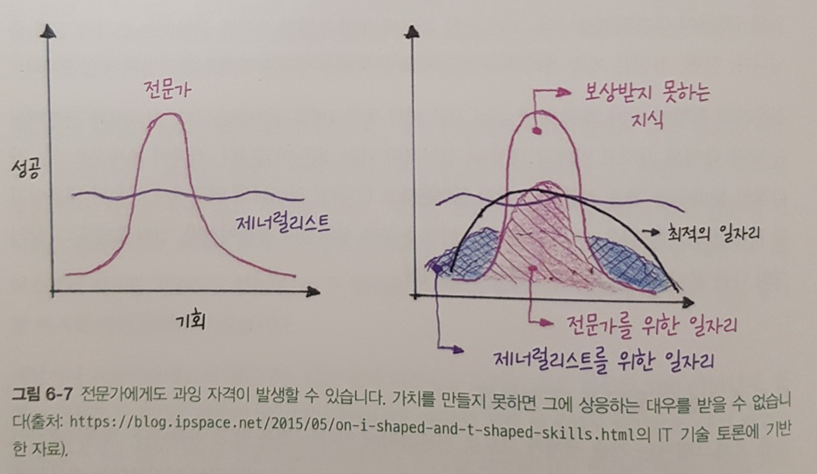 전문가
성공
제너럴리스트
기회
보상받지 못하는
지식
최적의 일자리
전문가를 위한 일자리
제너럴리스트를 위한 일자리
그림 6-7 전문가에게도 과잉 자격이 발생할 수 있습니다. 가치를 만들지 못하면 그에 상응하는 대우를 받을 수 없습니
다(출처: https://blog.ipspace.net/2015/05/on-i-shaped-and-t-shaped-skills.html의 IT 기술 토론에 기반
한 자료).